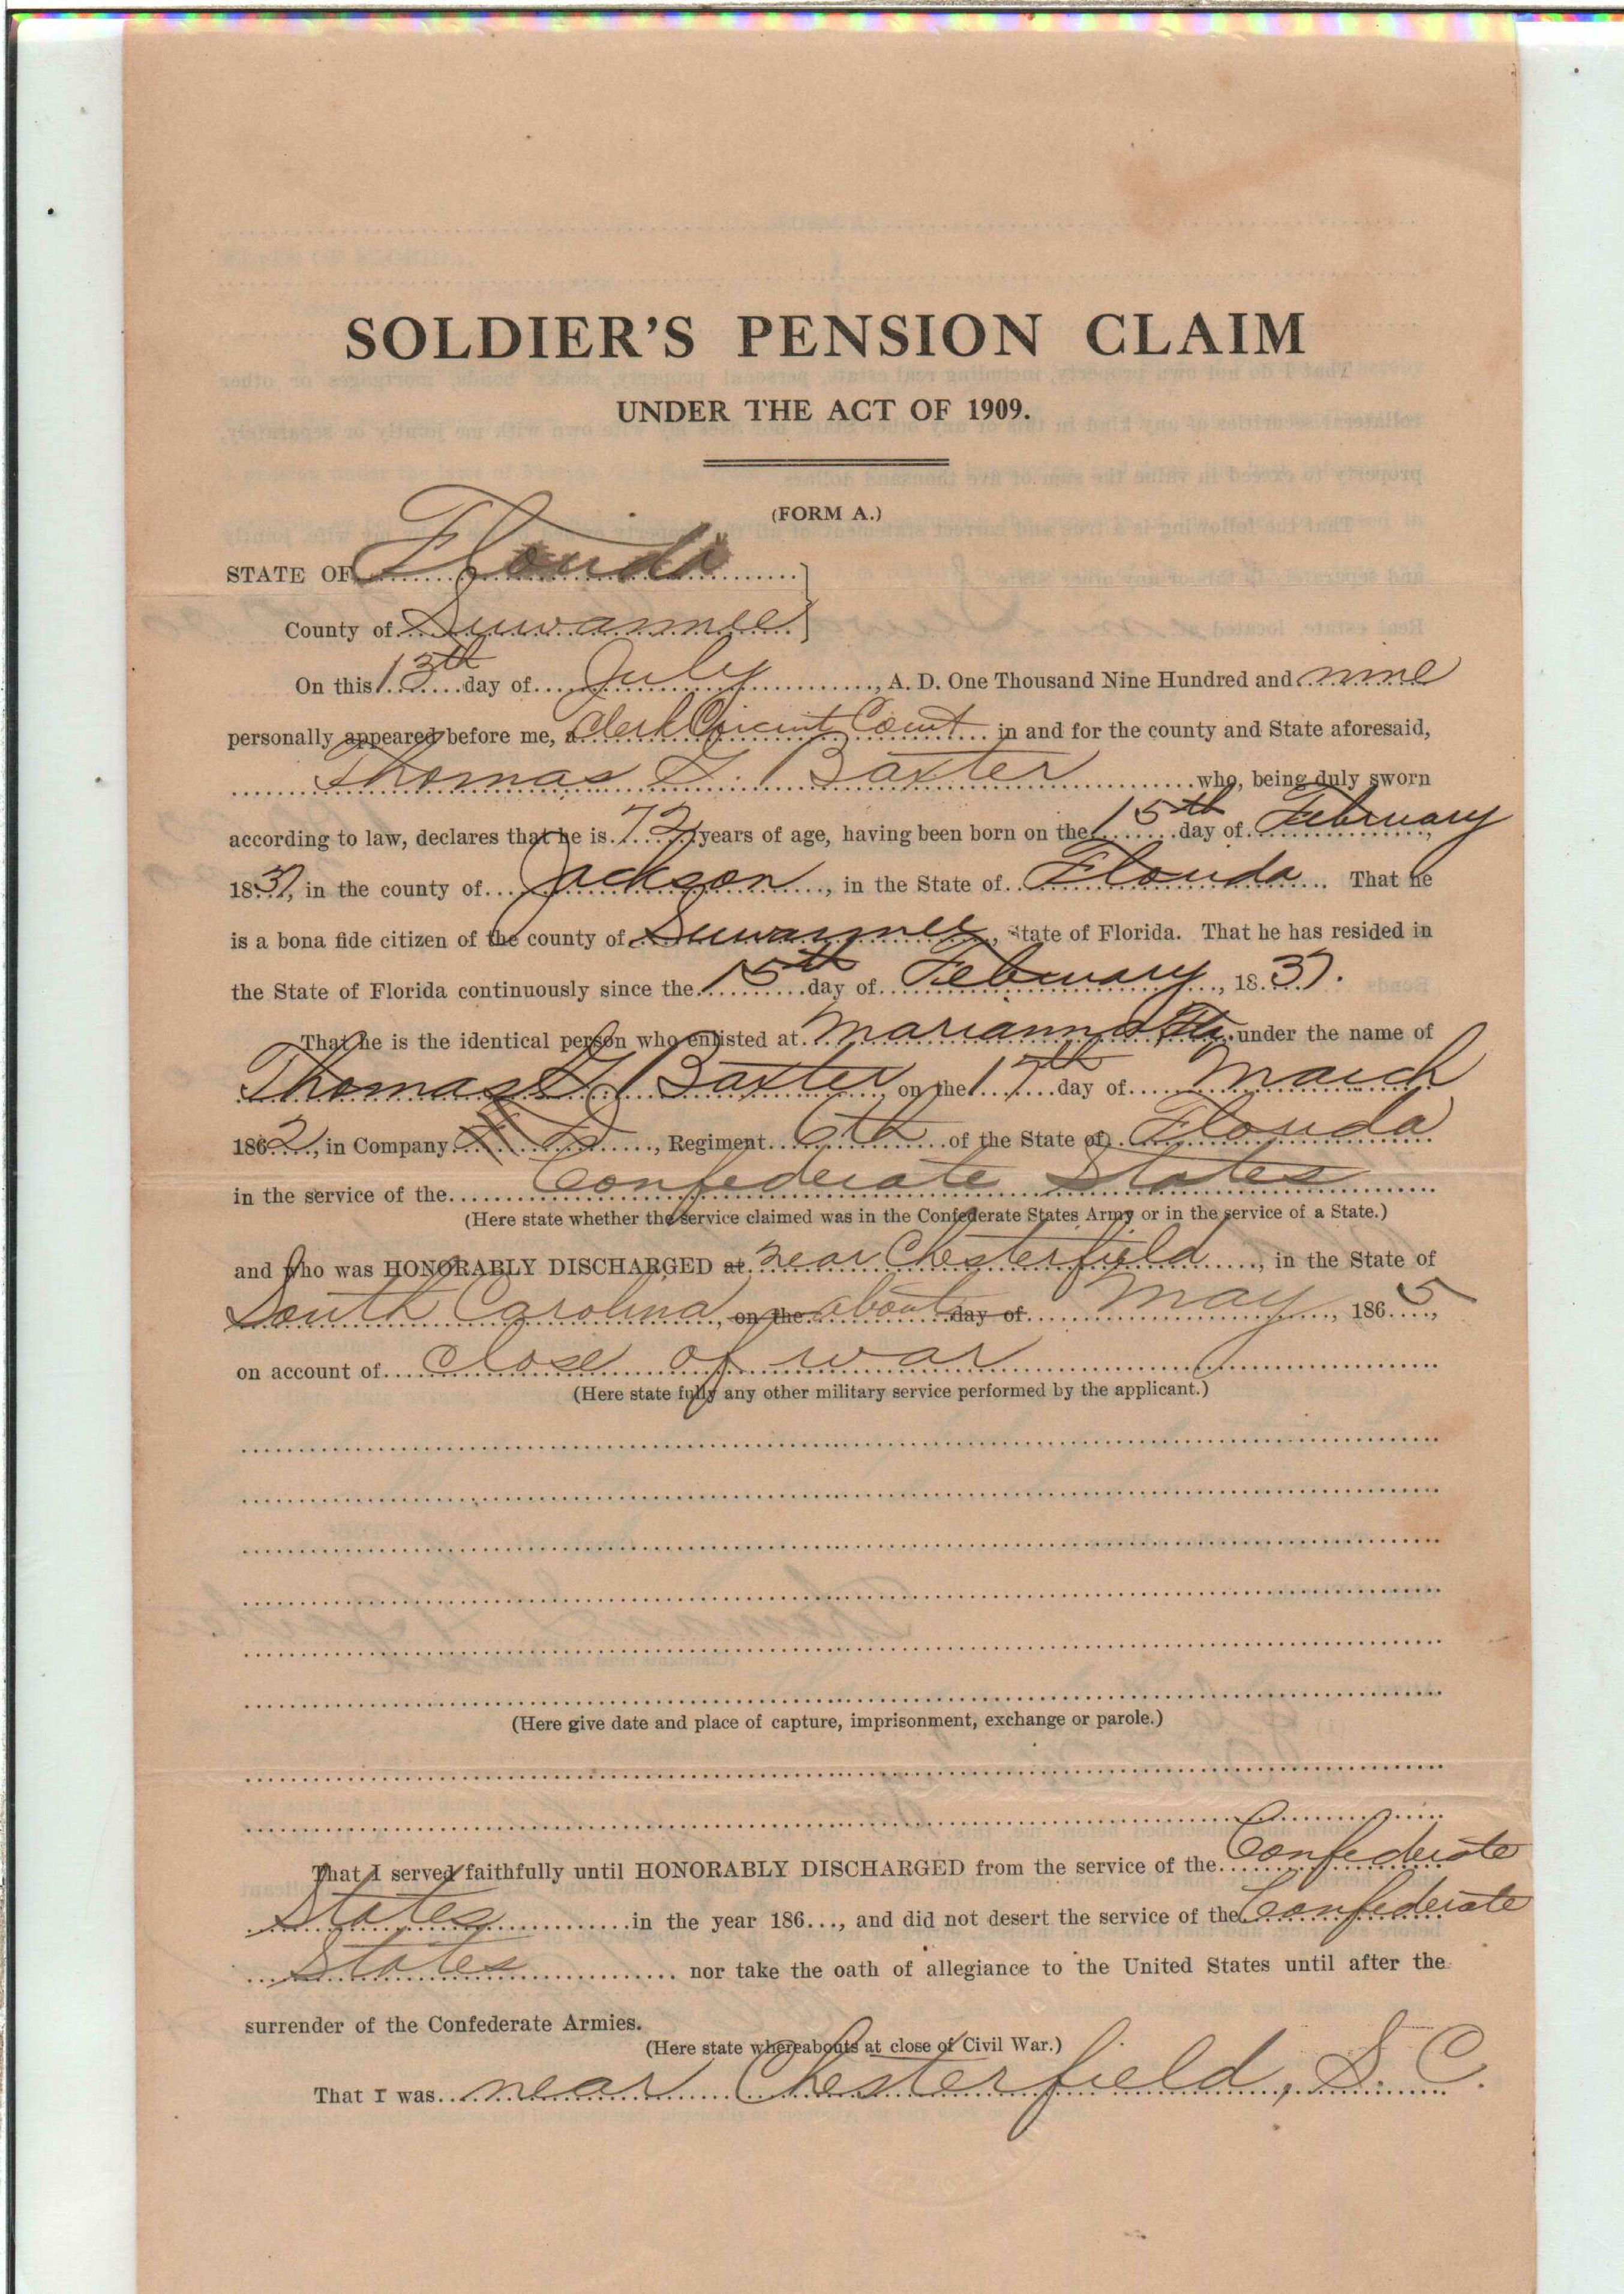 SOLDIER'S PENSION CLAIM
UNDER THE ACT OF 1909.
(FORM A.)
STATE OF Florida
County of Suwannee
On this 13th day of July, A. D. One Thousand Nine Hundred and nine
personally appeared before me, a Clerk Circuit Court in and for the county and State aforesaid,
Thomas G. Baxter who, being duly sworn
according to law, declares that he is 72 years of age, having been born on the 15th day of February
1837, in the county of Jackson, in the State of Florida. That he
is a bona fide citizen of the county of Suwannee, State of Florida. That he has resided in
the State of Florida continuously since the 15th day of February, 1837.
That he is the identical person who enlisted at Marianna Fla. under the name of
Thomas G. Baxter on the 17th day of March
1862, in Company, Regiment 6th of the State of Florida
in the service of the Confederate States
(Here state whether the service claimed was in the Confederate States Army or in the service of a State.)
and who was HONORABLY DISCHARGED at near Chesterfield, in the State of
South Carolina, on the about day of May, 1865,
on account of close of war
(Here state fully any other military service performed by the applicant.)
(Here give date and place of capture, imprisonment, exchange or parole.)
That I served faithfully until HONORABLY DISCHARGED from the service of the Confederate
States in the year 186..., and did not desert the service of the Confederate
States nor take the oath of allegiance to the United States until after the
surrender of the Confederate Armies.
(Here state whereabouts at close of Civil War.)
That I was near Chesterfield, S. C.